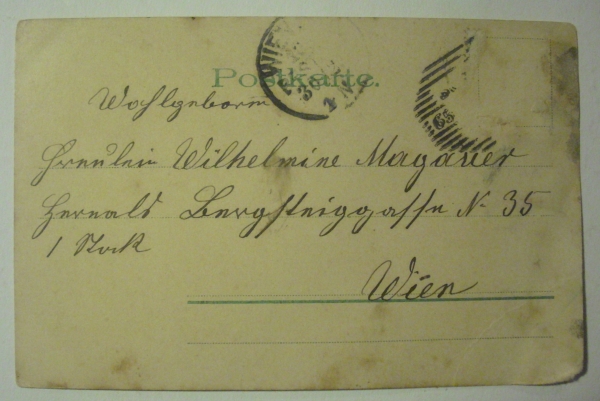 Postkarte.
WIEN
Wohlgeboren
Freulein Wilhelmine Magauer
Hernals Bergsteiggasse N. 35
1 Stock
Wien